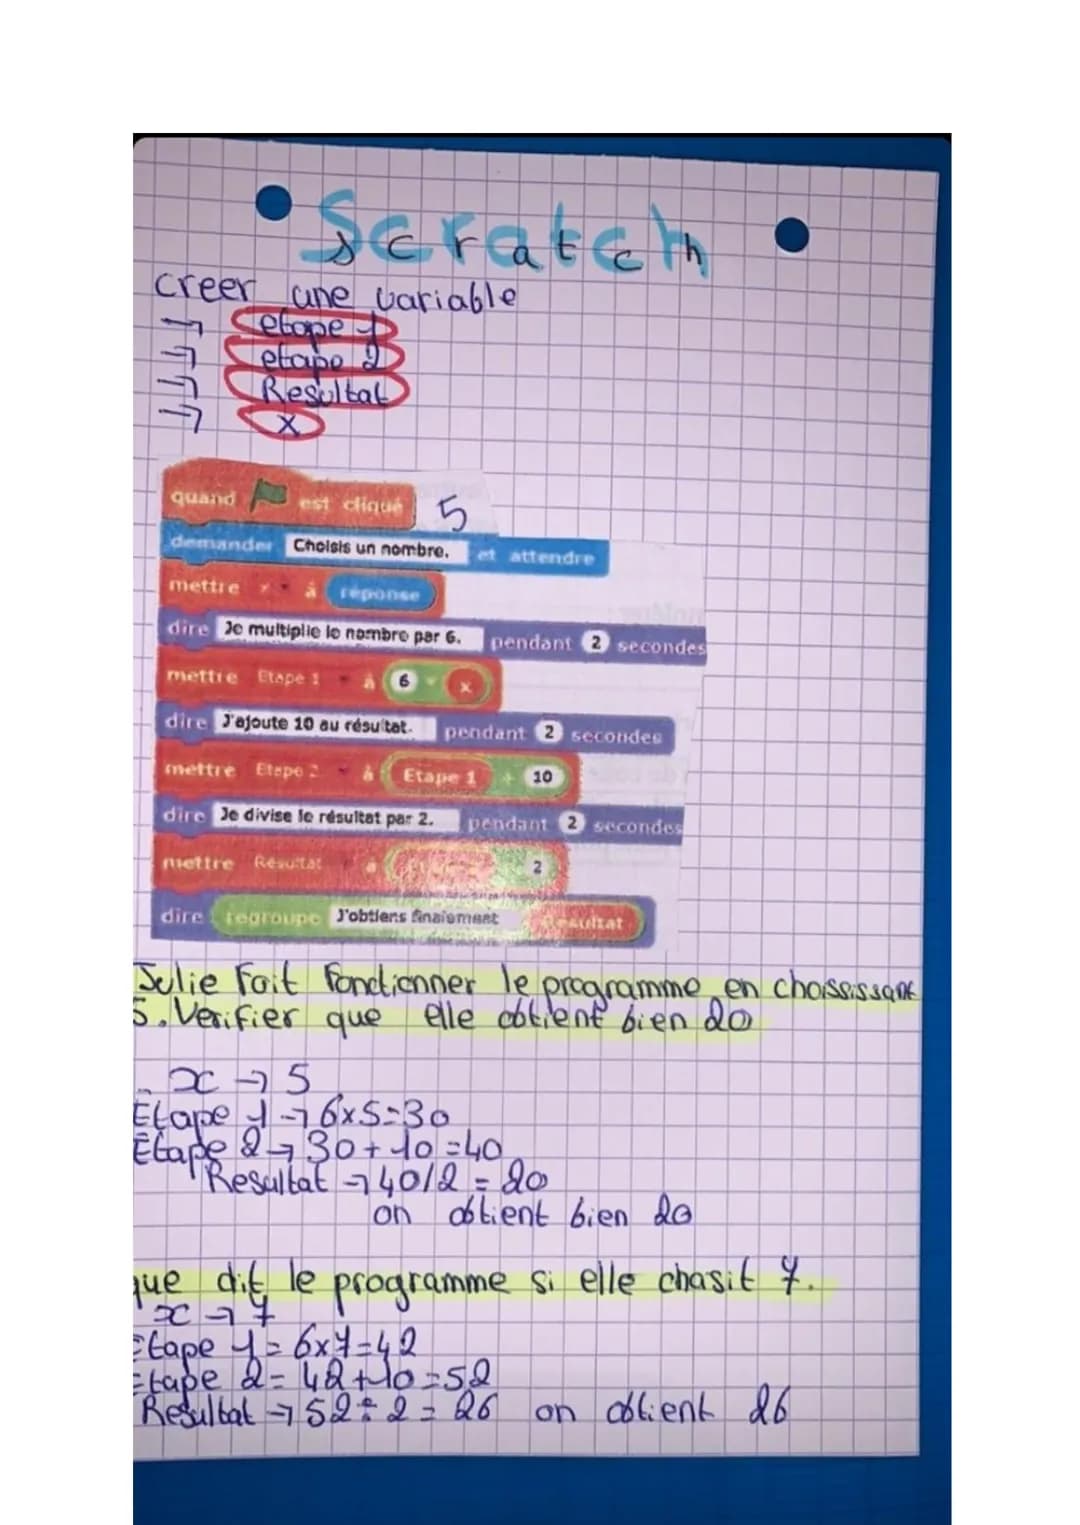 Scratch
creer une variable
→ etape 1
→ etape 2
→ Resultat
→ x
quand est cliqué 5
demander Choisis un nombre. et attendre
mettre x à réponse
dire Je multiplie le nombre par 6. pendant 2 secondes
mettre Etape 1 à 6 * x
dire J'ajoute 10 au résultat. pendant 2 secondes
mettre Etape 2 à Etape 1 + 10
dire Je divise le résultat par 2. pendant 2 secondes
mettre Résultat à 2
dire regroupe J'obtiens finalement Résultat
Julie Fait Fonctionner le programme en choississant
5. Verifier que elle obtient bien 20
- x → 5
Etape 1 → 6x5=30
Etape 2 → 30+10=40
Resultat → 40/2 = 20
on obtient bien 20
que dit le programme si elle chasit 7.
x → 7
Etape 1 = 6x7=42
Etape 2 = 42+10=52
Resultat → 52÷2 = 26 on obtient 26